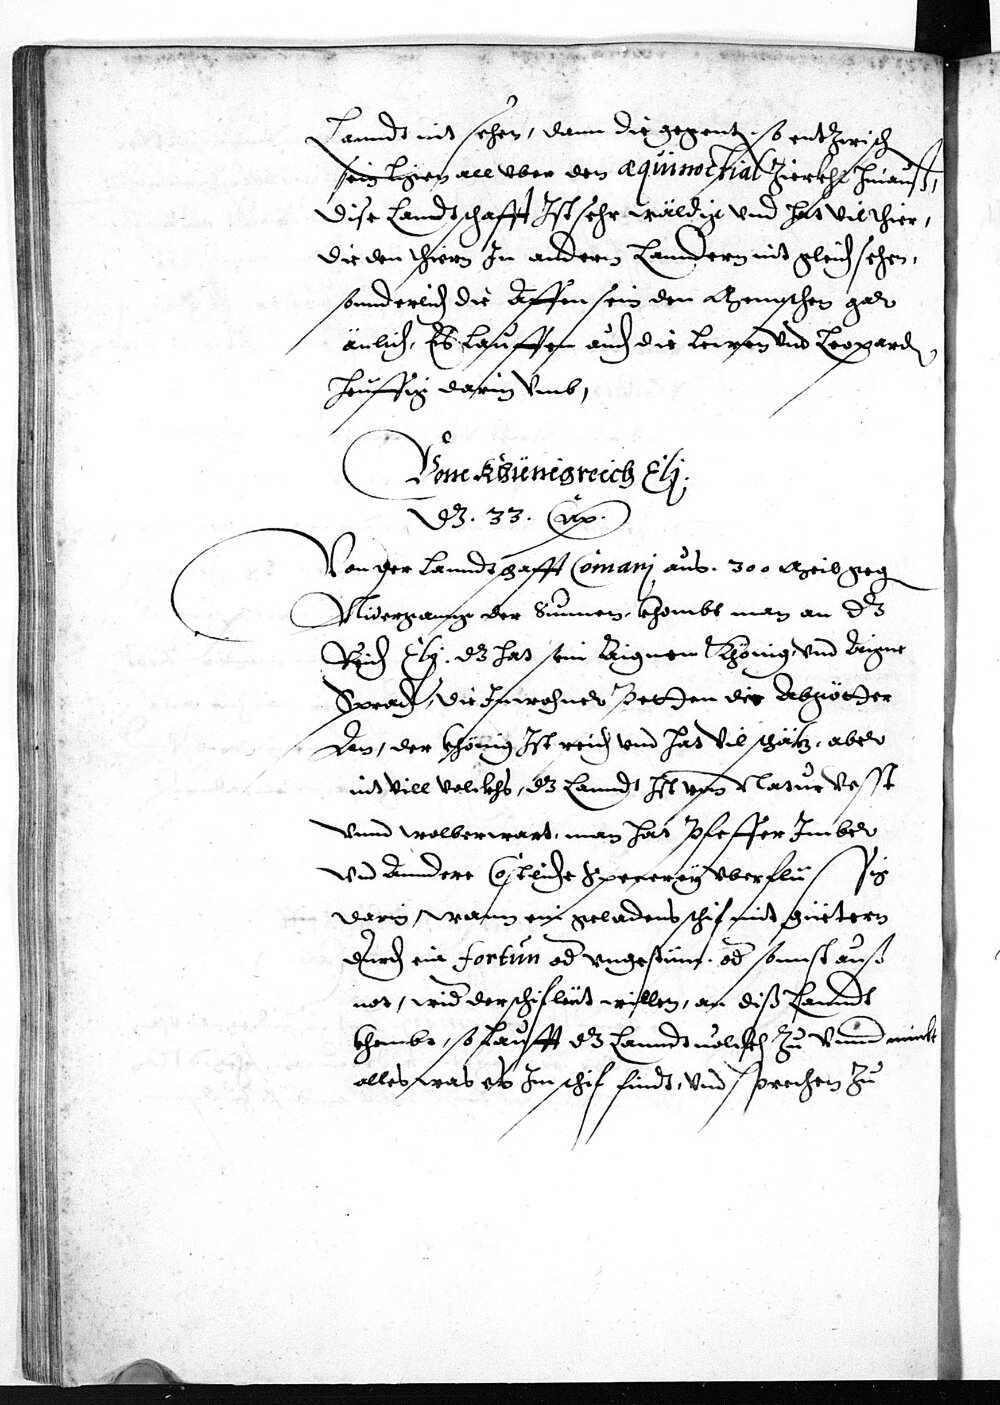 Lanndt nit sehen, dann die gegent, so enthzwisch
sein ligen all vber den æquinoctial Zierkhl hinauß,
dise Landtschafft Ist sehr wäldig vnd hat vil thier,
die den thiern In andern Lanndern nit gleich sehen,
sonnderlich die Affen sein den Menschen gar
änlich, Es Lauffen auch die Lewen vnd Leopardn
heuffig darin vmb,
Vom Khünigreich Elj.
Dz. 33. Cap.
Von der Lanndtschafft Comarj aus. 300 Meil geg
Nidergang der Sunnen, khombt man an dz
Reich Elj. dz hat sein Aignen Khönig, vnd Aigne
Sprach, die Inwohner petten die Abgötter
An, der khönig Ist reich vnd hat vil schätz, aber
nit vill volckhs, dz Lanndt Ist von Natur vesst
vnnd wolverwart, man hat Pfeffer Imber
vnd Anndere Costliche Specerey vberflüssig
darin, wann ein geladens schif mit güetern
durch ein fortun od vngestüm, od sonnst auß
not, wid der schifleüt willen, an diß Lanndt
khombt, so Laufft dz Lanndtuolckh Zu vnnd nimbt
alles was es Im schif findt, vnd sprechen Zu